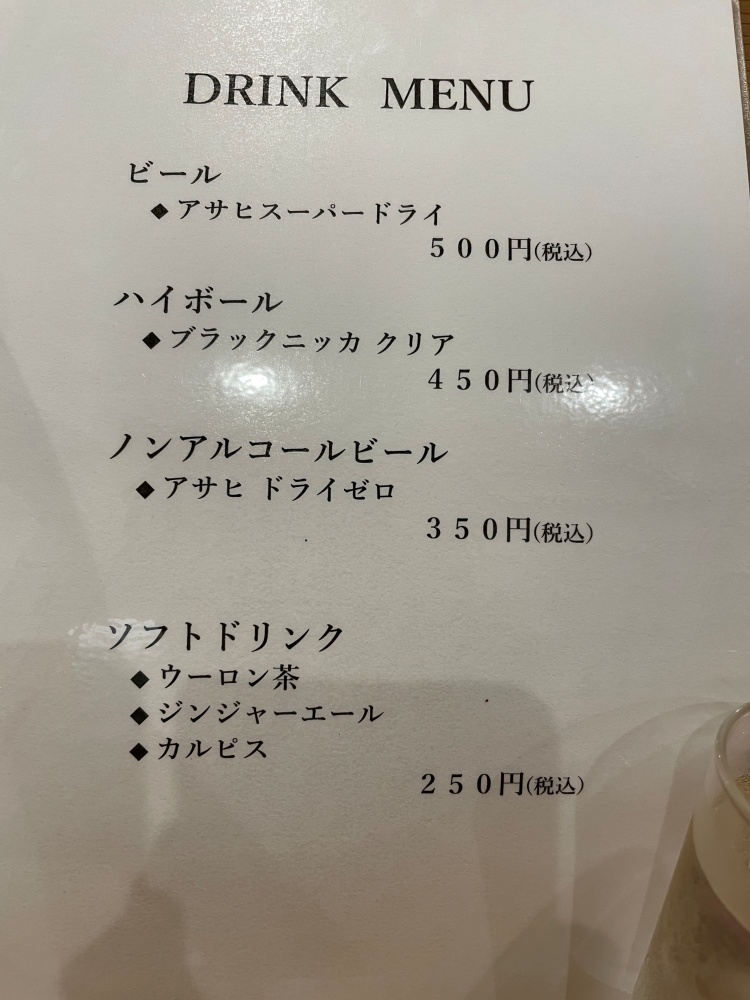 DRINK MENU
ビール
◆アサヒスーパードライ
５００円(税込)
ハイボール
◆ブラックニッカ クリア
４５０円(税込)
ノンアルコールビール
◆アサヒ ドライゼロ
３５０円(税込)
ソフトドリンク
◆ウーロン茶
◆ジンジャーエール
◆カルピス
２５０円(税込)